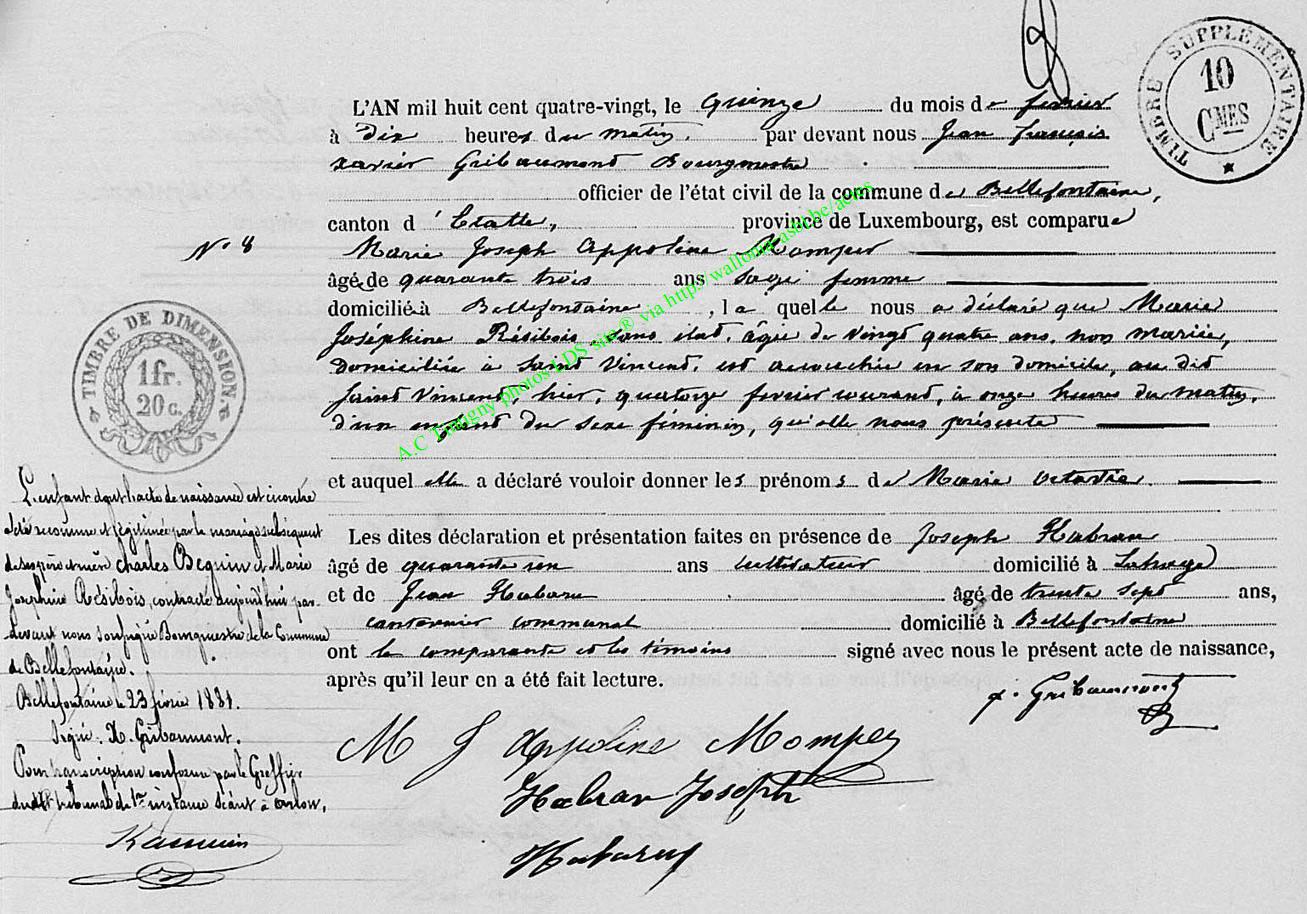 TIMBRE SUPPLÉMENTAIRE
10
CMES
L'AN mil huit cent quatre-vingt, le quinze du mois de fevrier
à dix heures du matin, par devant nous Jean françois
xavier Gribaumont Bourgmestre
officier de l'état civil de la commune de Bellefontaine,
canton d'Etalle, province de Luxembourg, est comparue
N° 8
Marie Joseph Appoline Momper
âgée de quarante trois ans sage femme
domiciliée à Bellefontaine, laquelle nous a déclaré que Marie
Joséphine Résibois sans état, âgée de vingt quatre ans, non mariée,
domiciliée à Saint Vincent, est accouchée en son domicile, au dit
Saint Vincent hier, quatorze fevrier courant, à onze heures du matin,
d'un enfant du sexe féminin, qu'elle nous présente
et auquel elle a déclaré vouloir donner les prénoms de Marie Octavie.
Les dites déclaration et présentation faites en présence de Joseph Habran
âgé de quarante un ans cultivateur domicilié à Lahage
et de Jean Habaru âgé de trente sept ans,
cantonnier communal domicilié à Bellefontaine
ont la comparante et les témoins signé avec nous le présent acte de naissance,
après qu'il leur en a été fait lecture.
x. Gribaumont
M J Appoline Momper
Habran Joseph
Habaru
TIMBRE DE DIMENSION.
1fr.
20 c.
L'enfant dont l'acte de naissance est ci contre
a été reconnu et légitimé par le mariage subséquent
de ses père et mère Charles Bequin et Marie
Joséphine Résibois, contracté aujourd'hui par
devant nous soussigné Bourgmestre de la Commune
de Bellefontaine.
Bellefontaine le 23 février 1881.
Signé: X. Gribaumont.
Pour transcription conforme par le Greffier
du dit tribunal de 1re instance séant à Arlon,
A.C Tintigny photos LDS site ® via http://wallonia.asbl.be/actes